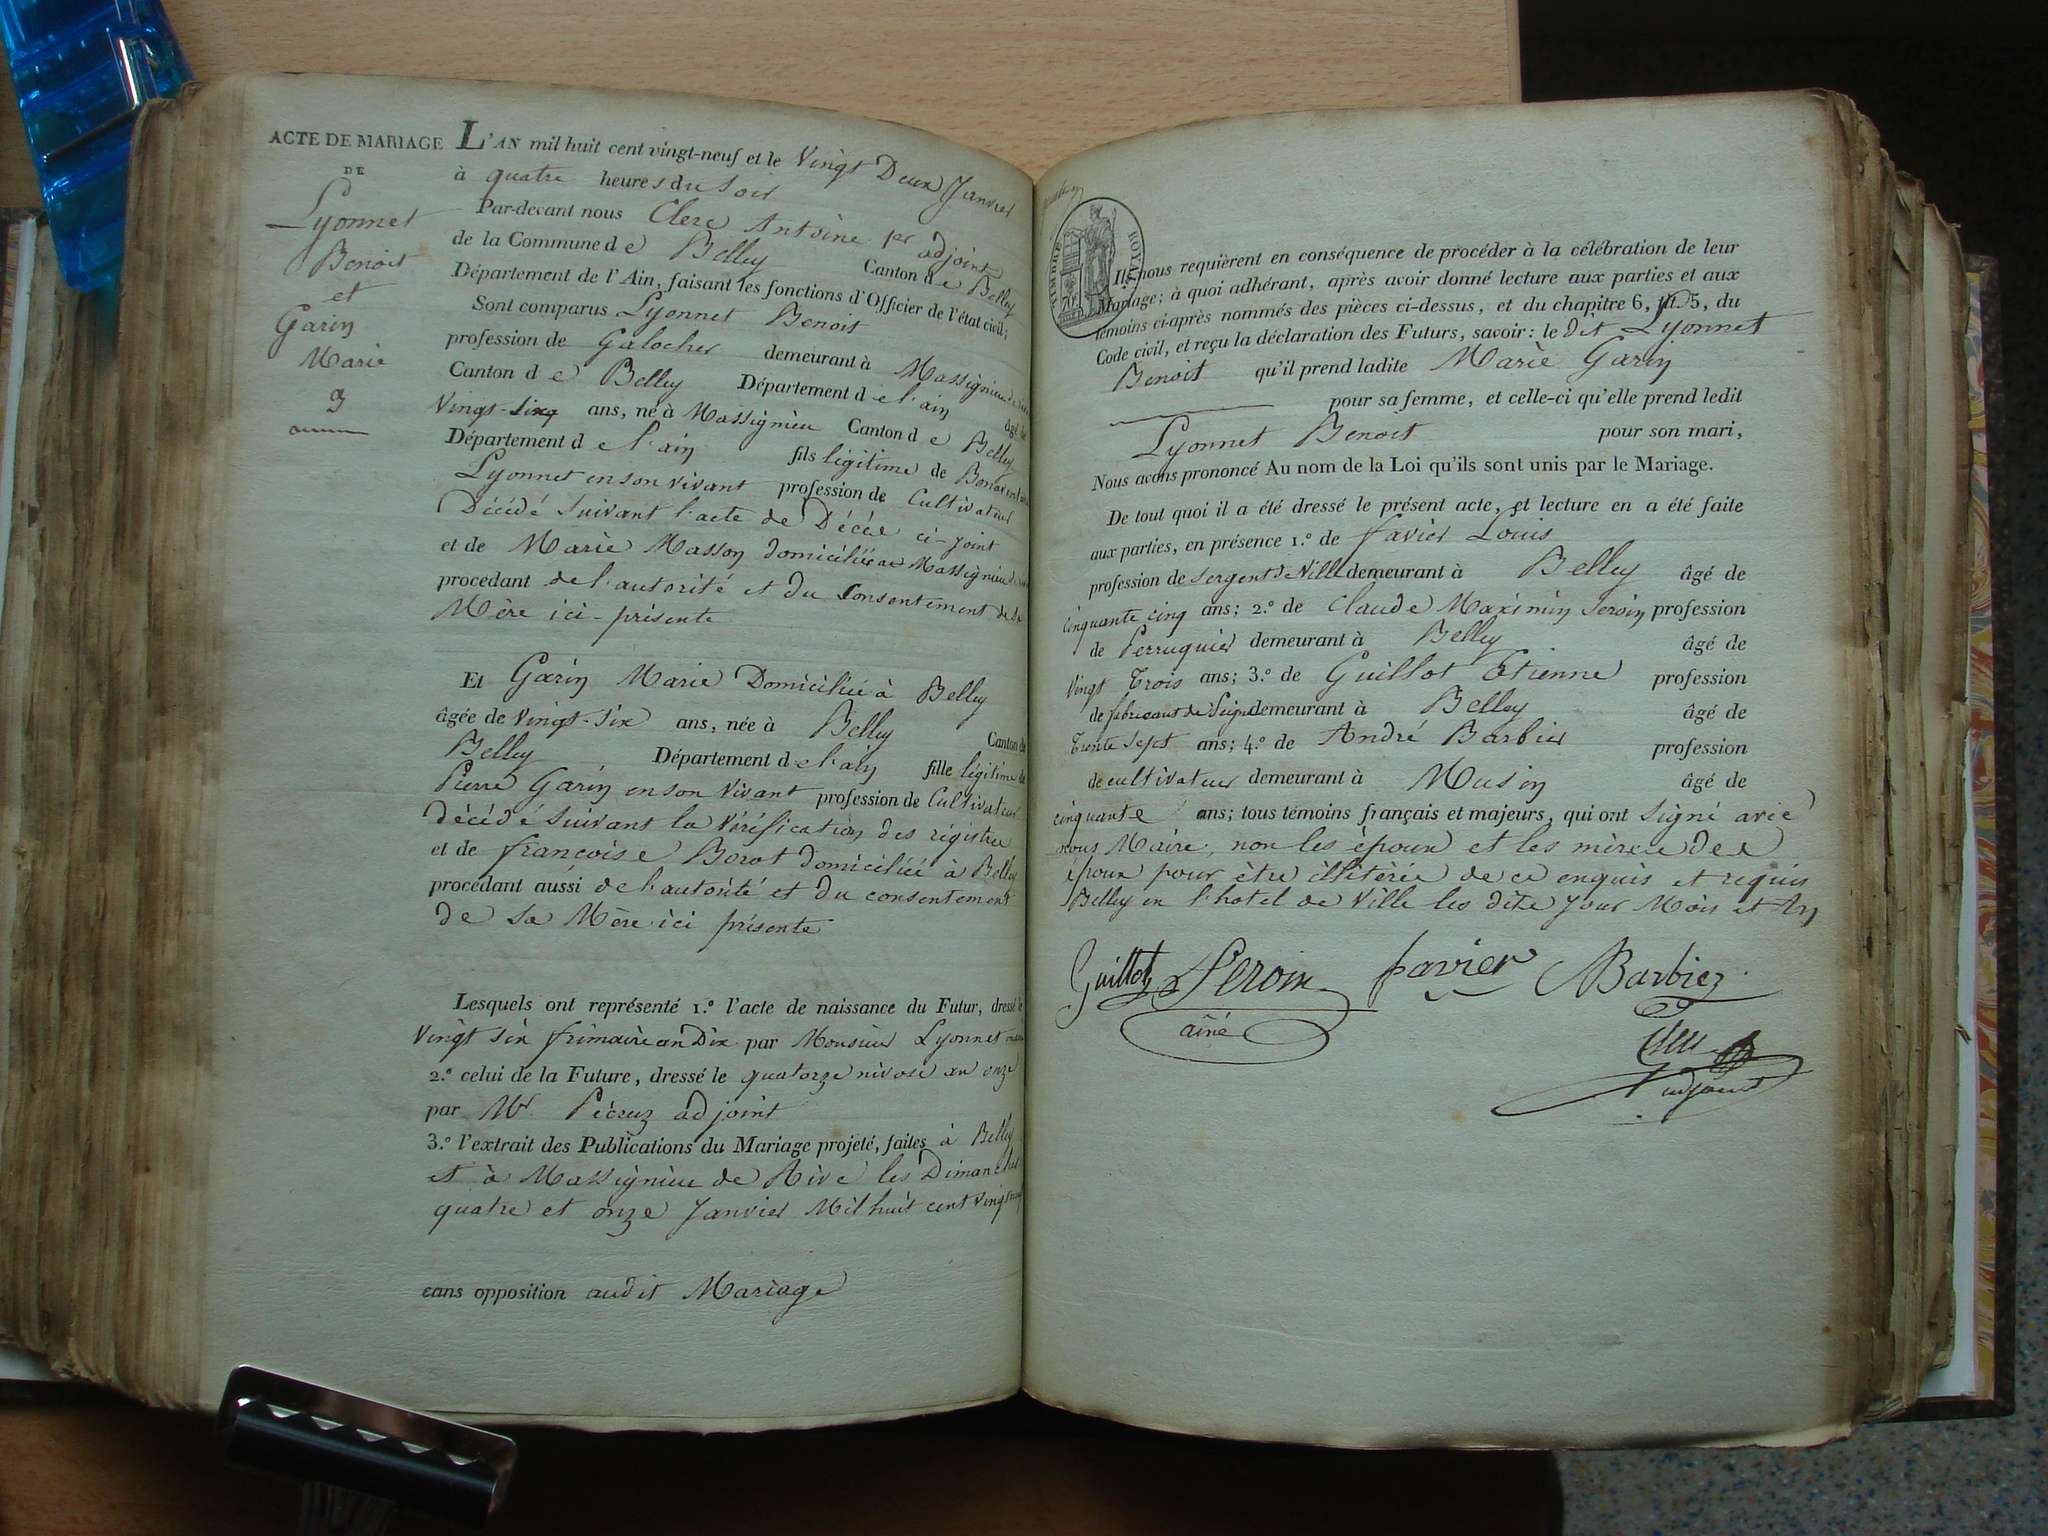 ACTE DE MARIAGE
DE
Lyonnet
Benoit
et
Garin
Marie
3
L'AN mil huit cent vingt-neuf et le Vingt Deux Janvier
à quatre heures du Soir
Par-devant nous Clerc Antoine 1er adjoint
de la Commune de Belley Canton de Belley
Département de l'Ain, faisant les fonctions d'Officier de l'état civil;
Sont comparus Lyonnet Benoit
profession de Galocher demeurant à Massignieu de
Canton de Belley Département de l'ain âgé de
Vingt-Sinq ans, né à Massignieu Canton de Belley
Département de l'ain fils légitime de Bonaventure
Lyonnet en son vivant profession de Cultivateur
Décédé suivant l'acte de Décée ci-joint
et de Marie Masson domiciliée a Massignieu
procédant de l'autorité et du Consentement de Sa
Mère ici-présente
Et Garin Marie Domiciliée à Belley
âgée de Vingt-Six ans, née à Belley Canton de
Belley Département de l'ain fille légitime de
Pierre Garin en son Vivant profession de Cultivateur
décédé suivant la Vérification des registre
et de francoise Borot domiciliée à Belley
procédant aussi de l'autorité et du consentement
de Sa Mère ici présente
Lesquels ont représenté 1.º l'acte de naissance du Futur, dressé le
Vingt Six frimaire an Dix par Monsieur Lyonnet
2.º celui de la Future, dressé le quatorze nivose an onze
par Mr Pécruz adjoint
3.º l'extrait des Publications du Mariage projeté, faites à Belley
et à Massignieu de Rive les Dimanches
quatre et onze Janvier Mil huit cent Vingt neuf
sans opposition audit Mariage
TIMBRE ROYAL
70c
Ils nous requièrent en conséquence de procéder à la célébration de leur
Mariage; à quoi adhérant, après avoir donné lecture aux parties et aux
témoins ci-après nommés des pièces ci-dessus, et du chapitre 6, tit. 5, du
Code civil, et reçu la déclaration des Futurs, savoir: le dit Lyonnet
Benoit qu'il prend ladite Marie Garin
pour sa femme, et celle-ci qu'elle prend ledit
Lyonnet Benoit pour son mari,
Nous avons prononcé Au nom de la Loi qu'ils sont unis par le Mariage.
De tout quoi il a été dressé le présent acte, et lecture en a été faite
aux parties, en présence 1.º de favier Louis
profession de Sergent de Ville demeurant à Belley âgé de
cinquante cinq ans; 2.º de Claude Maximin Seroin profession
de Perruquier demeurant à Belley âgé de
Vingt Trois ans; 3.º de Guillot Etienne profession
de fabricant de Peigne demeurant à Belley âgé de
Trente Sept ans; 4.º de André Barbier profession
de cultivateur demeurant à Musin âgé de
cinquante ans; tous témoins français et majeurs, qui ont signé avec
nous Maire, non les époux et les mères des
époux pour être illitérée de ce enquis et requis
Belley en l'hotel de Ville les dits Jour Mois et An
Guillot Seroin favier Barbier
ainé
Clerc
adjoint